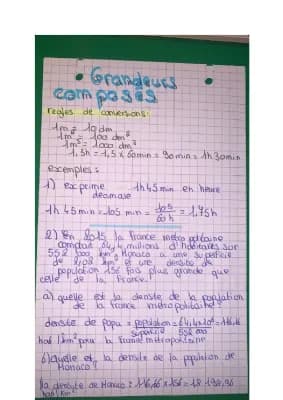 Grandeurs
composés
règles de conversions:
1m = 10 dm
1m² = 100 dm²
1m³ = 1000 dm³
1,5h = 1,5 x 60min = 90min = 1h30min
exemples:
1) exprime 1h45min en heure
décimale
1h 45min = 105 min = 105/60 h = 1,75h
2) En 2015 la France métropolitaine
comptait 64,4 millions d'habitants sur
552 000 km² Monaco a une superficie
de 2,02 km² et une densité de
population 156 fois plus grande que
celle de la France.
a) quelle est la densité de la population
de la France métropolitaine?
densité de popu = population/superficie = 64,4x10⁶/552 000 = 116,66
hab/km² pour la France métropolitaine
b) Quelle est la densité de la population de
Monaco?
la densité de Monaco: 116,66 x 156 = 18 198,96
hab/km²